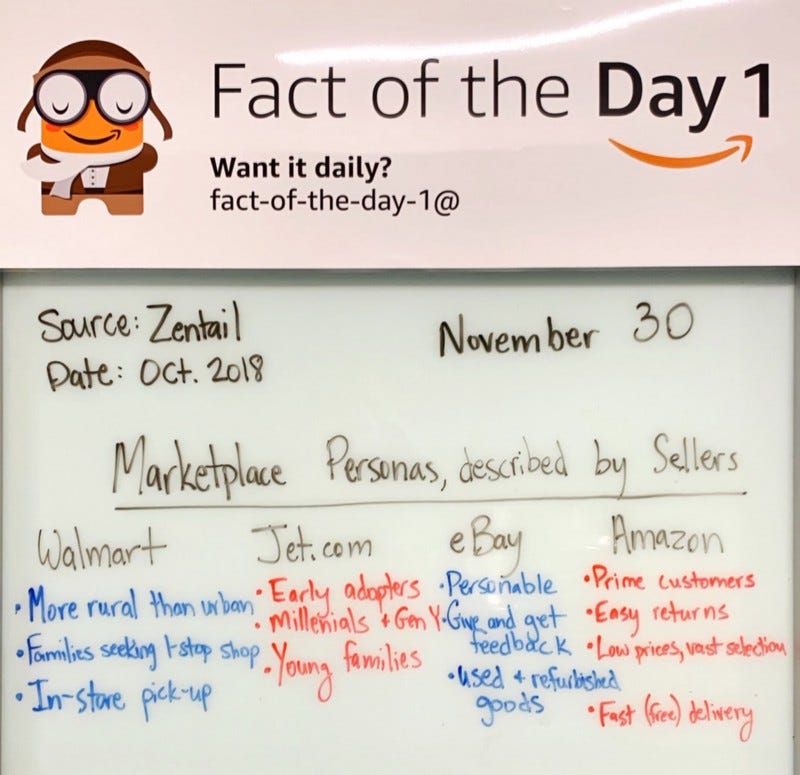 Fact of the Day 1
Want it daily?
fact-of-the-day-1@
Source: Zentail
Date: Oct. 2018
November 30
Marketplace Personas, described by Sellers
Walmart
• More rural than urban
• Families seeking 1-stop shop
• In-store pick-up
Jet.com
• Early adopters
• Millenials + Gen Y
• Young families
eBay
• Personable
• Give and get
feedback
• Used + refurbished
goods
Amazon
• Prime customers
• Easy returns
• Low prices, vast selection
• Fast (free) delivery